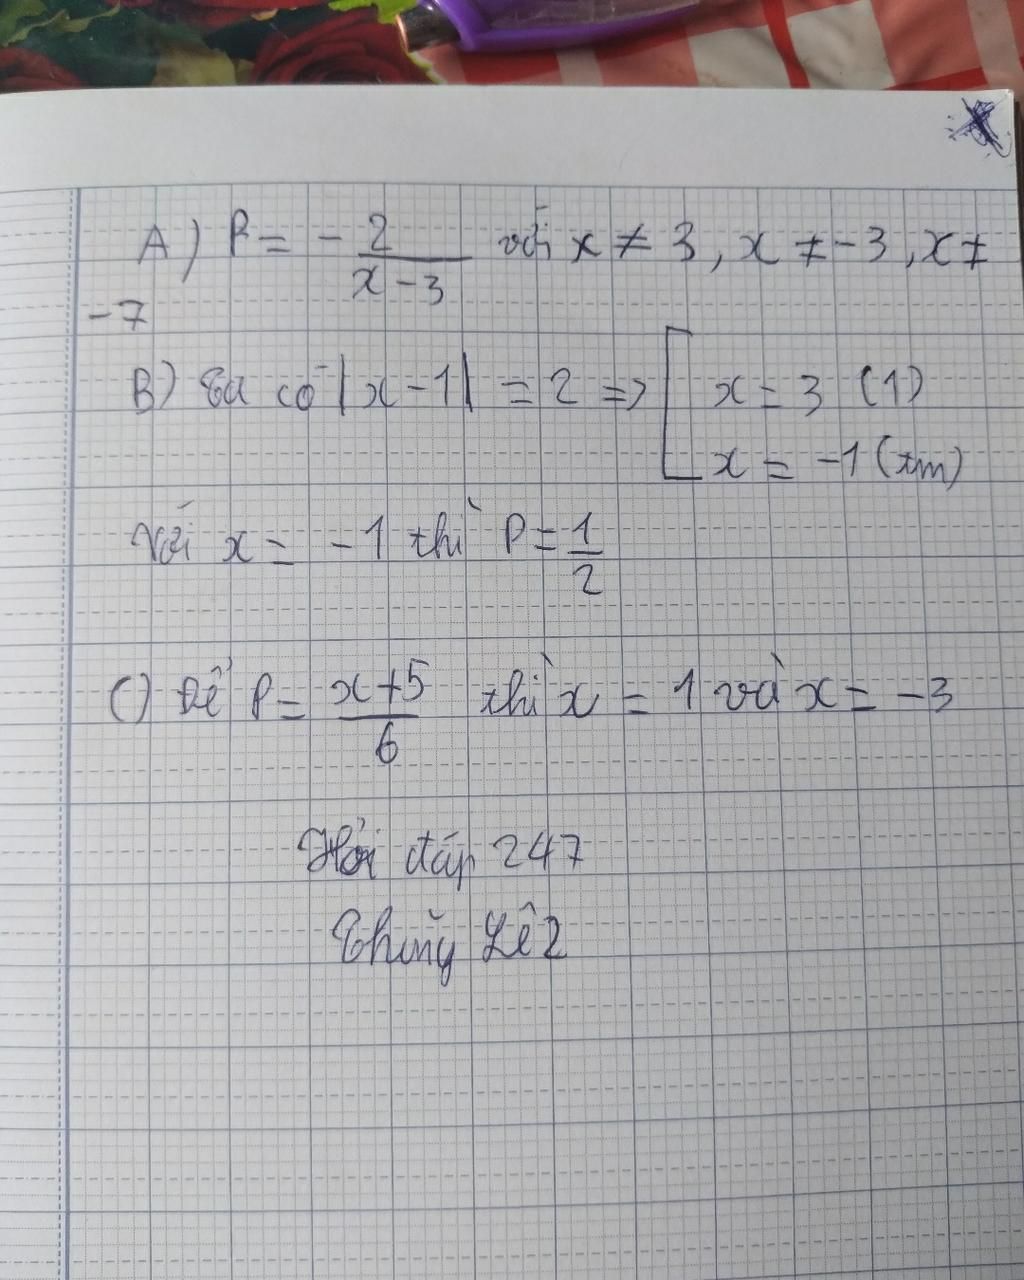 A) P = - 2/(x-3) với x ≠ 3, x ≠ -3, x ≠
-7
B) Ta có |x-1| = 2 => [ x = 3 (1)
x = -1 (tm)
Với x = -1 thì P = 1/2
C) Để P = (x+5)/6 thì x = 1 và x = -3
Hỏi đáp 247